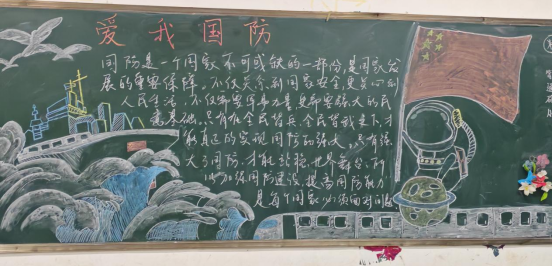 爱我国防
国防是一个国家不可或缺的一部份,是国家发
展的重要保障。不仅关系到国家安全,更关心到
人民生活。不仅需要军事力量更需要强大的民
意基础。只有在全民皆兵、全民
能真正的实现国防的强大。只有强
大了国防,才能 世界 所
以加强国防建设、提高国防能力
是每个国家必须面对问题